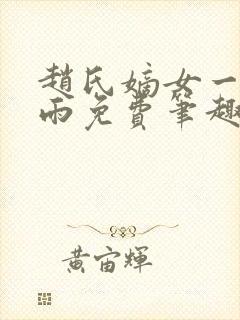 趙氏嫡女一
雨免費筆趣
黃宙輝